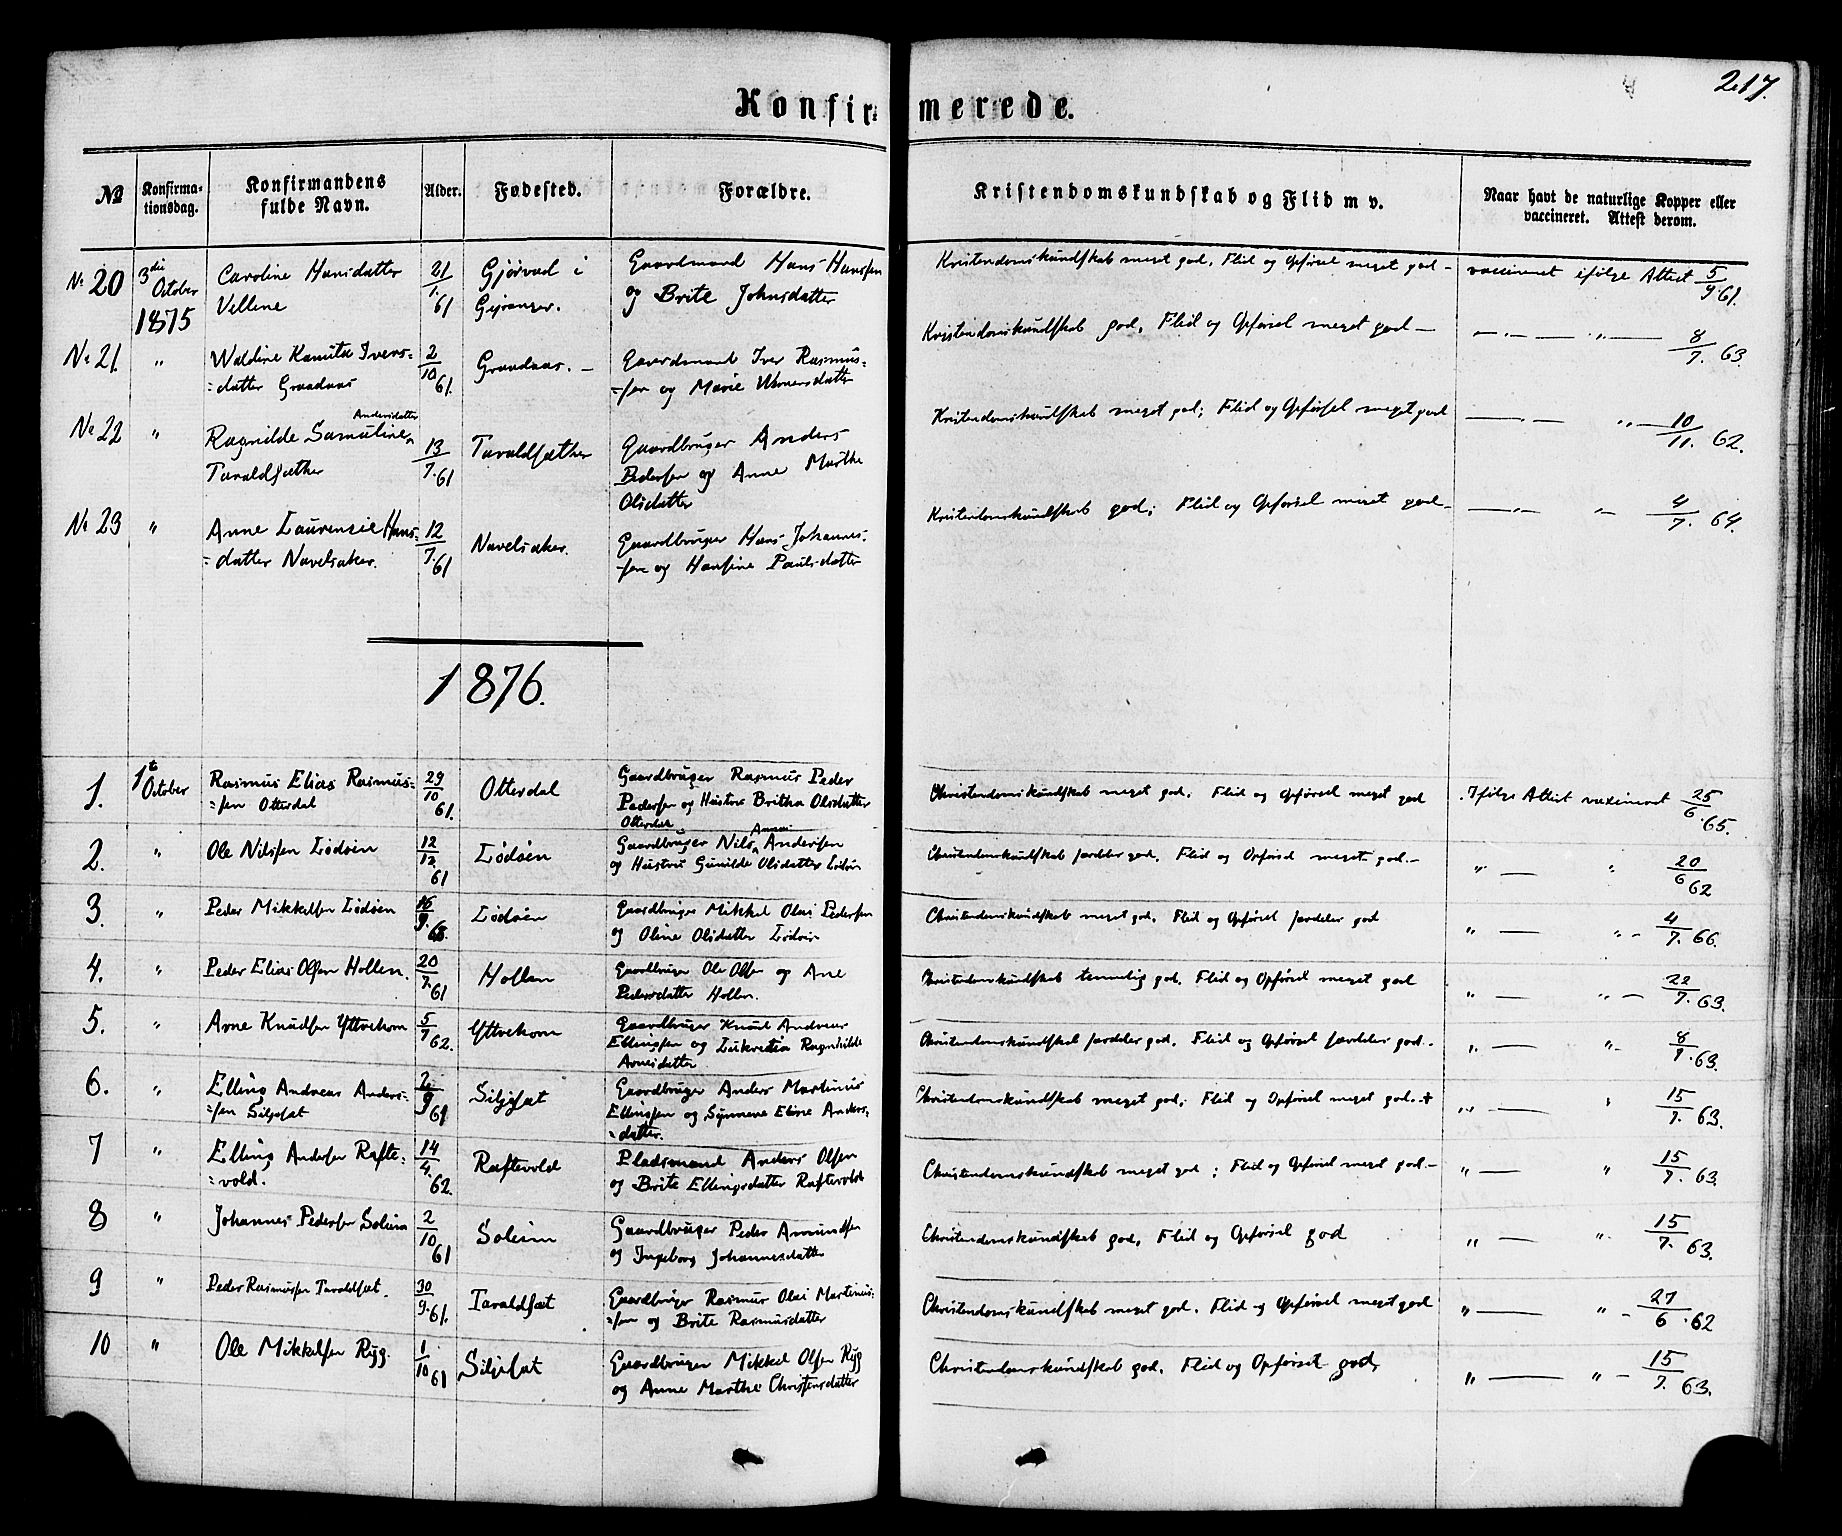 217.
Konfirmerede.
№ Konfirmationsdag. Konfirmandens fulde Navn. Alder. Fødested. Forældre. Kristendomskundskab og Flid m v. Naar havt de naturlige Kopper eller vaccineret. Attest derom.
№ 20 3die October 1875 Caroline Hansdatter 21/1.61 Gjørvad i Gaardmand Hans Hanssen Kristendomskundskab meget god, Flid og Opførsel meget god - vaccineret ifølge Attest 5/9.61.
Vellene Geiranger. og Brite Johnsdatter
№ 21. " Waldine Knuta Ivers= 2/10 61. Graadaas. - Gaardmand Iver Rasmus= Kristendomskundskab god, Flid og Opførsel meget god - — " — " — 8/7. 63.
=datter Graadaas =sen og Marie
№ 22 " Ragnilde Samuline Andersdatter 13/7.61 Tavaldsæther Gaardbruger Anders Kristendomskundskab meget god; Flid og Opførsel meget god — " — " — 10/11. 62.
Tavaldsæther Pedersen og Anne Marthe
Olsdatter
№ 23 " Anne Laurensie Hans= 12/7.61 Navelsaker. Gaardbruger Hans Johannes= Kristendomskundskab god; Flid og Opførsel meget god - — " — " — 4/7. 64.
=datter Navelsaker. =sen og Hansine Paulsdatter
1876.
1. 1t October Rasmus Elias Rasmus= 29/10 61. Otterdal Gaardbruger Rasmus Peder Christendomskundskab meget god. Flid og Opførsel meget god . Ifølge Attest vaccineret 25/6.65.
=sen Otterdal Pedersen og Hustru Britha Olsdatter
Otterdal
2. " Ole Nilssen Lødøen 12/12 61 Lødøen Gaardbruger Nils Andersen Christendomskundskab særdeles god. Flid og Opførsel meget god. - " — " 20/6 62
og Hustru Gunilde Olsdatter Lødøen
3. " Peder Mikkelsen Lødøen Lødøen Gaardbruger Mikkel Olai Pedersen Christendomskundskab meget god. Flid og Opførsel særdeles god " — " - 4/7. 66.
og Oline Olsdatter Lødøen
4. " Peder Elias Olsen Hollen. 20/7.61 Hollen Gaardbruger Ole Olsen og Ane Christendomskundskab temmelig god. Flid og Opførsel meget god " — " — 22/7. 63.
Pedersdatter Hollen.
5. " Arne Knudsen Yttrehorn 5/7 62. Yttrehorn Gaardbruger Knud Andreas Christendomskundskab særdeles god. Flid og Opførsel særdeles god. - " — " - 63.
Ellingsen og Lukretia Ragnhilde
Arnesdatter
6. " Elling Andreas Anders= 2/9 61 Siljesæt Gaardbruger Anders Martinus Christendomskundskab meget god; Flid og Opførsel meget god. + " — " 15/7. 63.
=sen Siljesæt Ellingsen og Synneve Eline Anders=
=datter.
7 " Elling Andersen Rafte= 14/4.62. Raftevold Pladsmand Anders Olsen Christendomskundskab meget god ; Flid og Opførsel meget god. - " — " 15/7. 63.
=vold. og Brite Ellingsdatter Raftevold
8 " Johannes Pedersen Soleim 2/10 61 Soleim Gaardbruger Peder Amundsen Christendomskundskab god, Flid og Opførsel god " — " - 15/7. 63.
og Ingeborg Johannesdatter
9 " Peder Rasmussen Tavaldsæt. 30/9.61. Tavaldsæt Gaardbruger Rasmus Olai Martinus= Christendomskundskab meget god. Flid og Opførsel meget god " — " - 27/6 .62
=sen og Brite Rasmusdatter
10 " Ole Mikkelsen Ryg. 1/10 61 Siljesæt Gaardbruger Mikkel Olsen Ryg Christendomskundskab god. Flid og Opførsel god, " — " - 15/7. 63.
og Anne Marthe Christensdatter